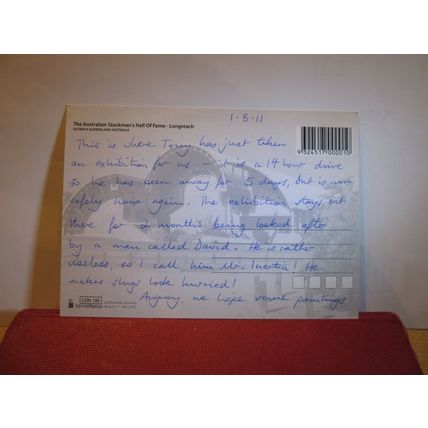 1-8-11
The Australian Stockman's Hall Of Fame - Longreach
OUTBACK QUEENSLAND AUSTRALIA
9324517000010
This is where Tony has just taken
an exhibition for us - it is a 14 hour drive
so he has been away for 5 days, but is now
safely home again. The exhibition stays out
there for 2 months being looked after
by a man called David. He is rather
useless, so I call him Mr. Inertia! He
makes slugs look hurried!
Anyway, we hope some paintings
LON 100